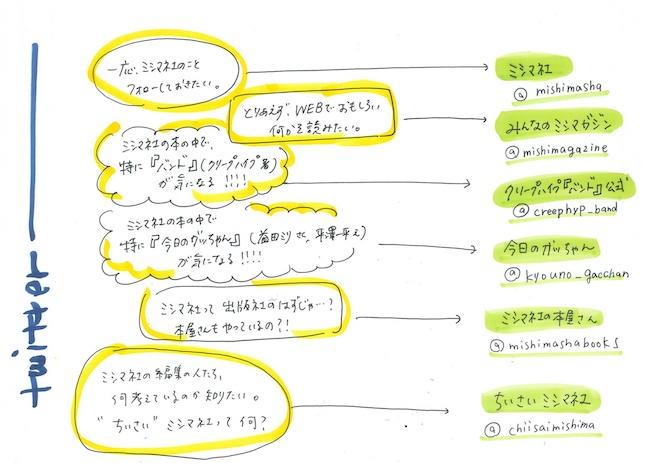 twitter
一応、ミシマ社のこと
フォローしておきたい。
ミシマ社
@mishimasha
とりあえず、WEBでおもしろい
何かを読みたい。
みんなのミシマガジン
@mishimagazine
ミシマ社の本の中で、
特に『バンド』(クリープハイプ著)
が気になる!!!!
クリープハイプ『バンド』公式
@creephyp_band
ミシマ社の本の中で
特に『今日のガッちゃん』(益田ミリさく、平澤一平え)
が気になる!!!!
今日のガッちゃん
@kyouno_gacchan
ミシマ社って出版社のはずじゃ…?
本屋さんもやっているの?!
ミシマ社の本屋さん
@mishimashabooks
ミシマ社の編集の人たち、
何考えているのか知りたい。
“ちいさい”ミシマ社って何?
ちいさいミシマ社
@chiisaimishima